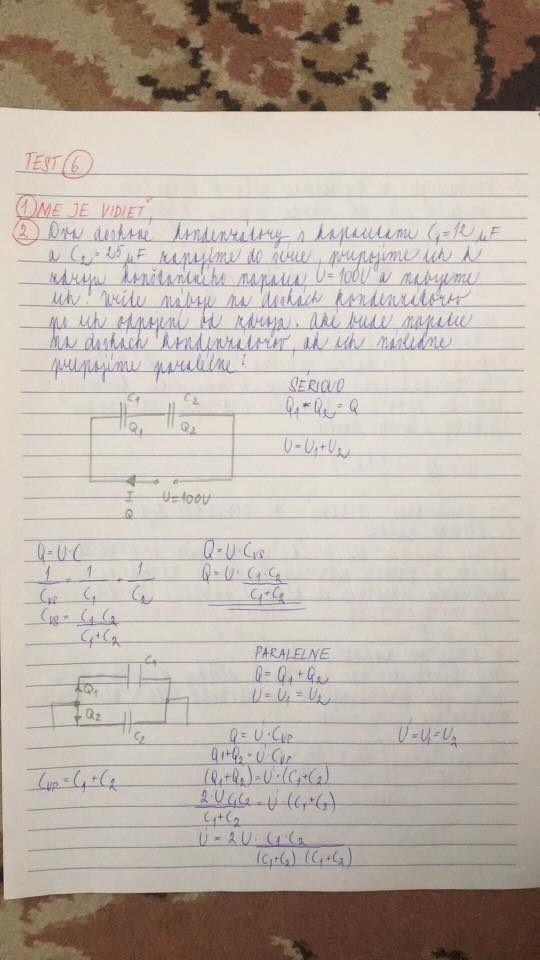 TEST 6
1. ME JE VIDIEŤ,
2. Dva doskové kondenzátory s kapacitami C₁=12 μF
a C₂=25 μF zapojíme do série, pripojíme ich k
zdroju konštantného napätia U=100V a nabijeme
ich. Určite náboje na doskách kondenzátorov
po ich odpojení od zdroja. Aké bude napätie
na doskách kondenzátorov, ak ich následne
prepojíme paralelne?
SÉRIOVO
C₁ C₂
Q₁ = Q₂ = Q
Q₁ Q₂
U = U₁+U₂
I U=100V
Q
Q=U·C
Q=U·Cvs
1/Cvs = 1/C₁ + 1/C₂
Q=U· C₁·C₂/C₁+C₂
Cvs = C₁·C₂/C₁+C₂
PARALELNE
C₁
Q = Q₁+Q₂
Q₁
U = U₁ = U₂
Q₂
C₂
Q = U·Cvp
U=U₁=U₂
Q₁+Q₂ = U·Cvp
Cvp = C₁+C₂
(Q₁+Q₂) = U·(C₁+C₂)
2·U C₁C₂/C₁+C₂ = U·(C₁+C₂)
U = 2U· C₁·C₂/(C₁+C₂)(C₁+C₂)